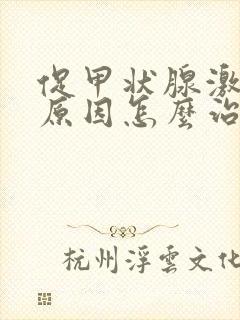 促甲状腺激
原因怎麼治
杭州浮雲文化